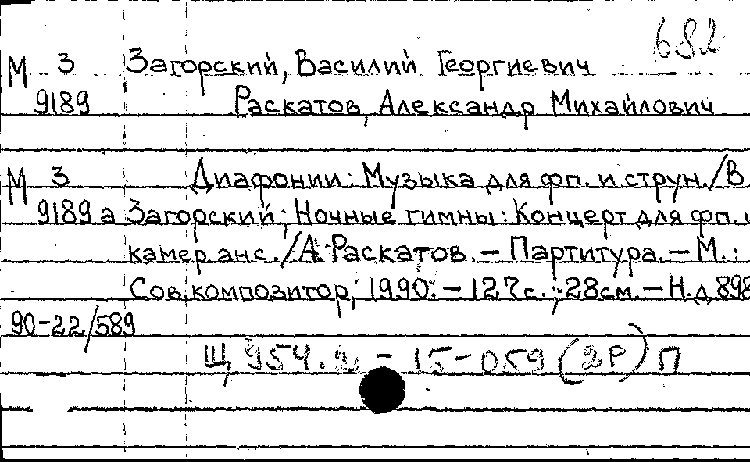 682
М 3 Загорский, Василий Георгиевич
9189 Раскатов, Александр Михайлович
М 3 Диафонии: Музыка для фп. и струн./В.
9189 а Загорский; Ночные гимны: Концерт для фп. и
камер. анс./А. Раскатов. – Партитура. – М.:
Сов. композитор, 1990. – 127 с.; 28 см. – Н.д. 898
90-22/589
Щ 954.2 - 15-059 (2Р) П